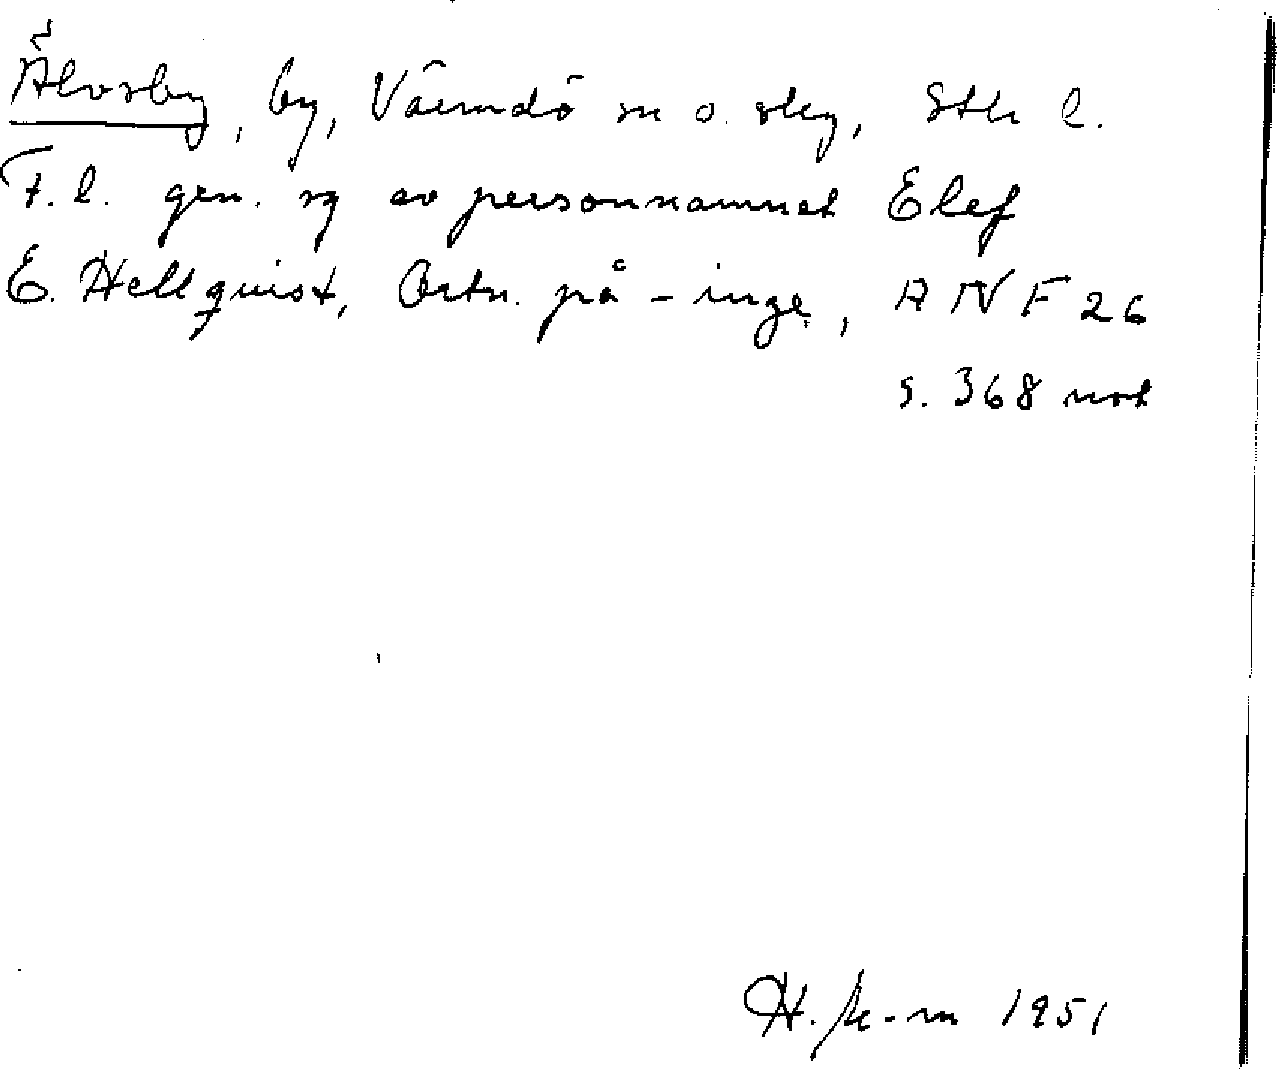 Älvsby, by, Värmdö sn o. skg, Sth l.
F.l. gen. sg av personnamnet Elef
E. Hellquist, Ortn. på -inge, ANF 26
s. 368 not
H. 1951